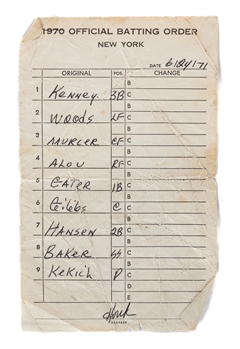 1970 OFFICIAL BATTING ORDER
NEW YORK
DATE 6/24/71
ORIGINAL POS. CHANGE
B
1 Kenney 3B C
B
2 WOODS LF C
B
3 MURCER CF C
B
4 ALOU RF C
B
5 CATER 1B C
B
6 Gibbs C C
B
7 HANSEN 2B C
B
8 BAKER SS C
B
9 KeKich P C
D
E
Houk